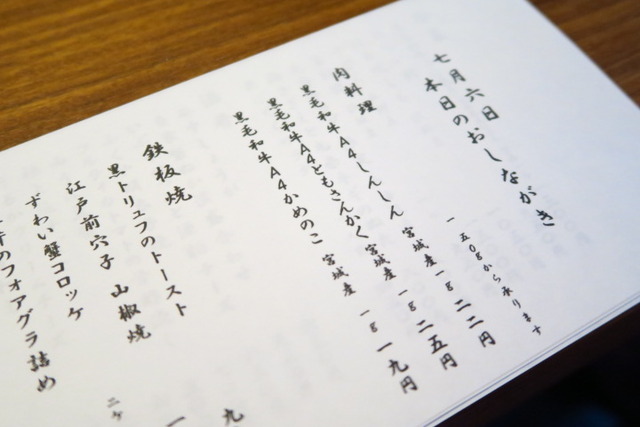 七月六日
本日のおしながき
一五〇gから承ります
肉料理
黒毛和牛A4しんしん 宮城産 一g 二二円
黒毛和牛A4ともさんかく 宮城産 一g 二五円
黒毛和牛A4かめのこ 宮城産 一g 一九円
鉄板焼
黒トリュフのトースト 九
江戸前穴子 山椒焼 一
ずわい蟹コロッケ 二ヶ
のフォアグラ詰め